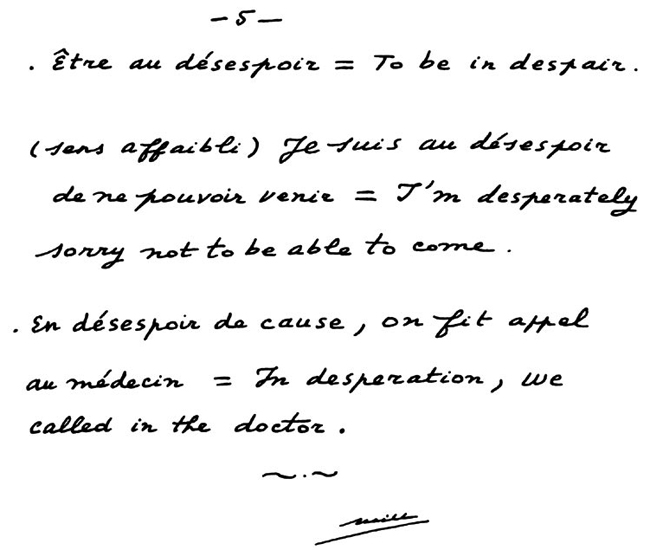 - 5 -
. Être au désespoir = To be in despair.
(sens affaibli) Je suis au désespoir
de ne pouvoir venir = I'm desperately
sorry not to be able to come.
. En désespoir de cause, on fit appel
au médecin = In desperation, we
called in the doctor.
~.~